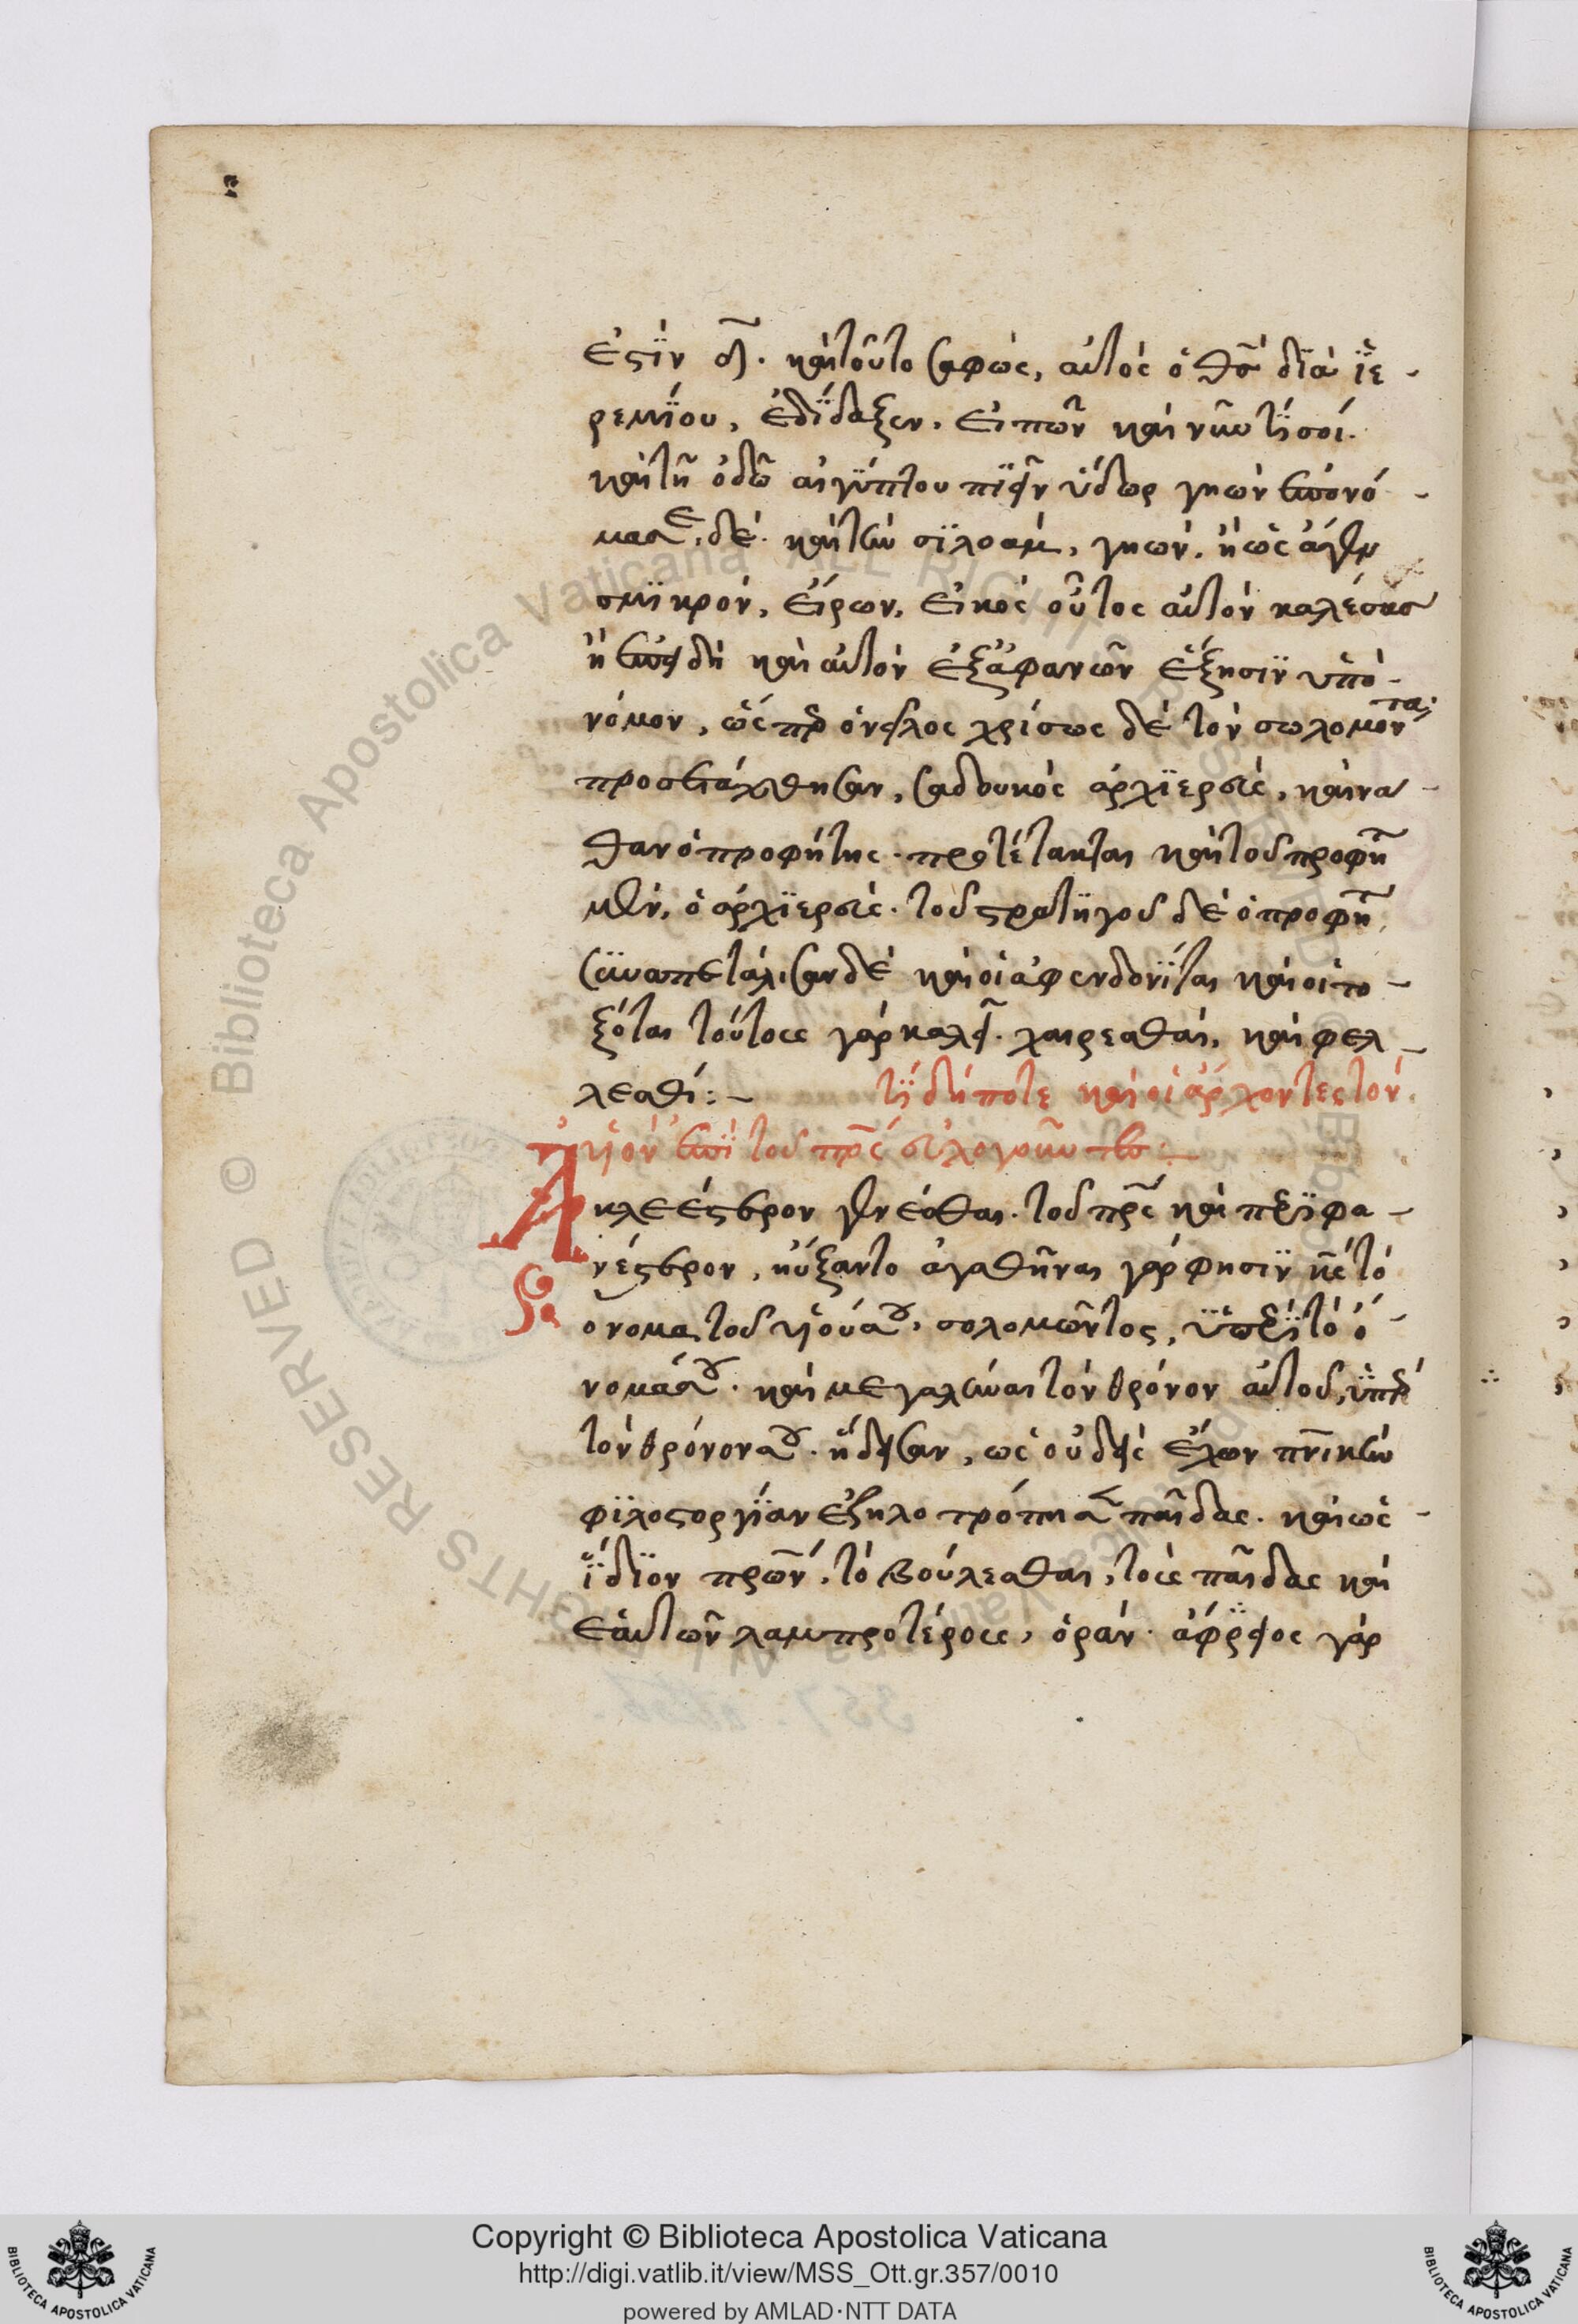 ἐστὶν οὗ. καὶ τοῦτο σαφῶς, αὐτὸς ὁ θς διὰ ἱε-
ρεμίου, ἐδίδαξεν. εἰπὼν καὶ νῦν τί σοί.
καὶ τῆ ὁδῶ αἰγύπτου πιεῖν ὕδωρ γηών ἐπονό-
μασε. δὲ καὶ τὸν σιλοάμ, γηών. ἢ ὡς ἄγαν
σμικρὸν, εἴρων. εἰκὸς οὕτως αὐτὸν καλέσας
ἢ ἐπειδὴ καὶ αὐτὸν ἐξ ἀφανῶν ἔξησιν ὑπο-
νόμον, ὡς πρὸ ὄντος χρίσως δὲ τὸν σωλομόντα
προστάχθησαν, σαδουκὸς ἀρχιερεὺς, καὶ να-
θαν ὁ προφήτης. προτέτακται καὶ τοῦ προφή
μὲν, ὁ ἀρχιερεύς. τοῦ στρατηγοῦ δὲ ὁ προφή
συναπεστάλησαν δὲ καὶ οἱ ἀφενδονίται καὶ οἱ το-
ξόται τούτους γὰρ καλεῖ. χαιρεαθαί, καὶ φελ-
λεαθί:-
τί δήποτε καὶ οἱ ἄρχοντες τὸν
υἱὸν ἐπὶ τοῦ πρς εὐλογοῦντο:
Ακλεέστερον γενέσθαι. τοῦ πρς καὶ περιφα-
νέστερον, ηὔξαντο ἀγαθῆναι γάρ φησιν κς τὸ
ὄνομα τοῦ υἱοῦ σου. σολομῶντος, ὑπὲρ τὸ ὄ-
νομά σου. καὶ μεγαλῦναι τὸν θρόνον αὐτοῦ, ὑπὲρ
τὸν θρόνον σου. ἤδεισαν, ὡς οὐδεὶς ἔχων πρικὴν
φιλοστοργίαν ἐζηλοτρόπησε παῖδας. καὶ ὡς
ἴδιον πρων, τὸ βούλεσθαι, τοὺς παῖδας καὶ
ἑαυτῶν λαμπροτέρους, ὁρᾶν. ἀφρϊτος γὰρ
Copyright © Biblioteca Apostolica Vaticana
http://digi.vatlib.it/view/MSS_Ott.gr.357/0010
powered by AMLAD·NTT DATA